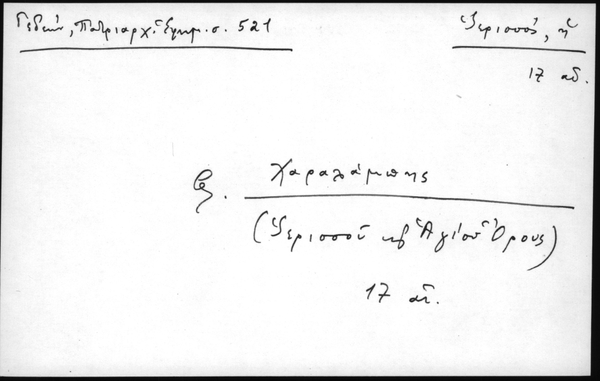 Γεδεών, Πατριαρχ. Ἐφημ. σ. 521
Ἱερισσός, ἡ
17 αἰ.
Χαραλάμπης
(Ἱερισσοῦ κ Ἁγίου Ὄρους)
17 αἰ.